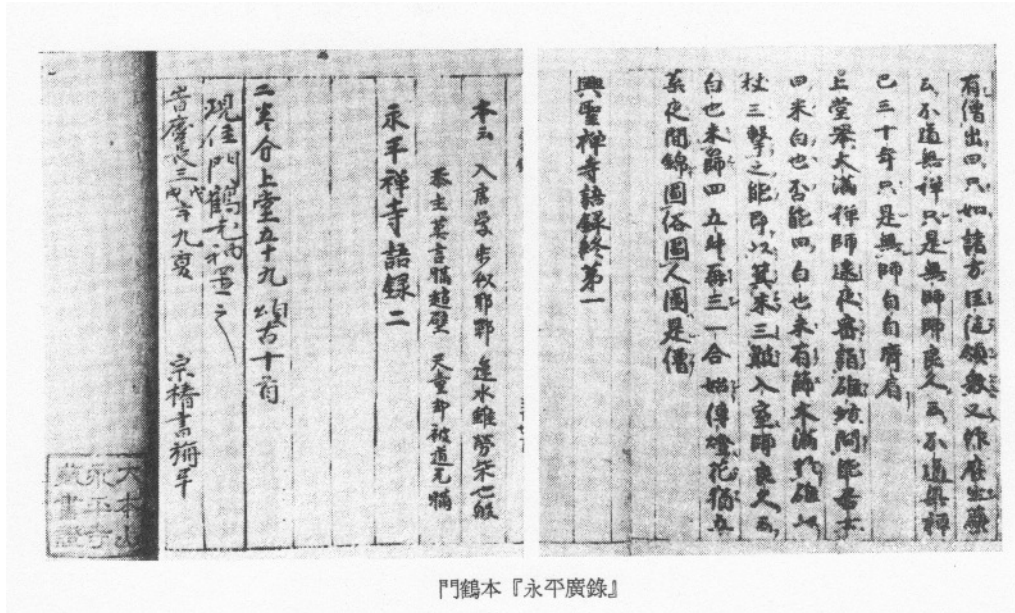 有僧出曰只如諸方匡徒領衆又作麼生蘗
云不道無禅只是無師師良久云不道無禅
已三十年只是無師自白齊眉
上堂挙大滿禅師遠夜密詣碓坊問能居士
曰米白也否能曰白也未有篩大滿以
杖三撃之能即以箕米三簸入室師良久云
白也未篩四五斗再三一合始傳燈花猶五
葉夜間錦圖俗圖人圖是僧
興聖禅寺語録終第一
本云 入唐学步似邯鄲 運水幾労柴也般
莫言瞞趙璧 天童却被道元瞞
永平禅寺語録二
二巻合上堂五十九 頌古十首
現住門鶴置之
慶長三戊戌九夏 宗椿書
大本山
永平寺
藏書證
門鶴本『永平廣錄』